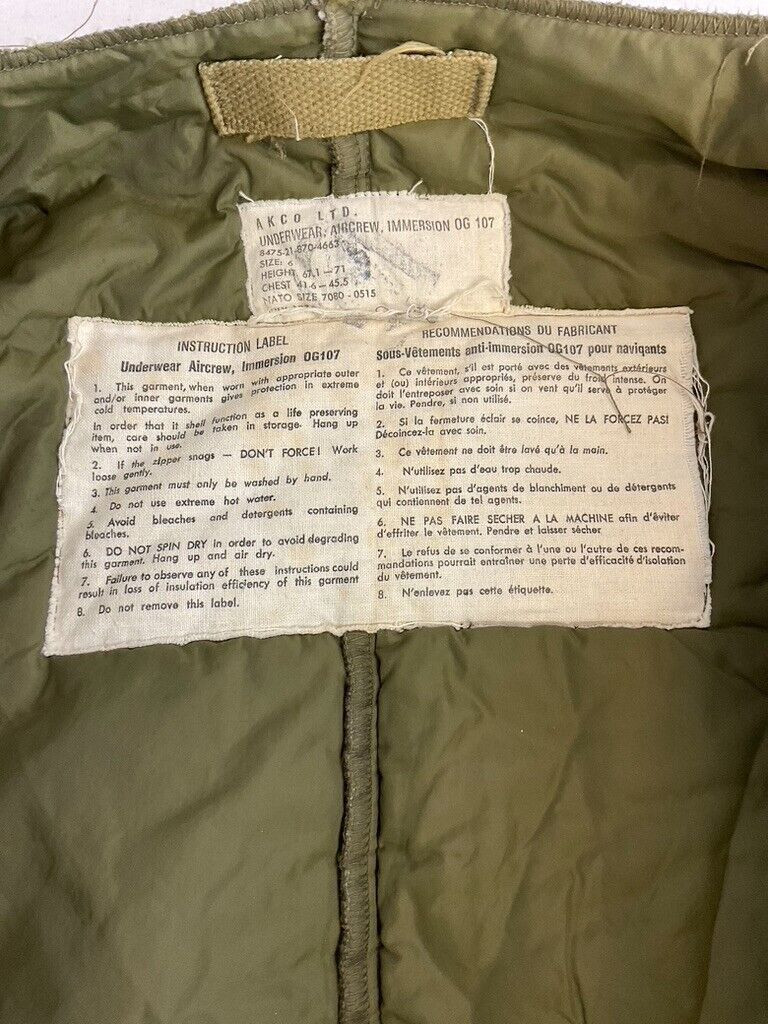 AKCO LTD.
UNDERWEAR, AIRCREW, IMMERSION OG 107
8475-21-870-4663
SIZE: 6
HEIGHT 67.1-71
CHEST 41.6-45.5
NATO SIZE 7080-0515
INSTRUCTION LABEL
Underwear Aircrew, Immersion OG107
1. This garment, when worn with appropriate outer
and/or inner garments gives protection in extreme
cold temperatures.
In order that it shell function as a life preserving
item, care should be taken in storage. Hang up
when not in use.
2. If the zipper snags — DON'T FORCE! Work
loose gently.
3. This garment must only be washed by hand.
4. Do not use extreme hot water.
5. Avoid bleaches and detergents containing
bleaches.
6. DO NOT SPIN DRY in order to avoid degrading
this garment. Hang up and air dry.
7. Failure to observe any of these instructions could
result in loss of insulation efficiency of this garment
8. Do not remove this label.
RECOMMENDATIONS DU FABRICANT
Sous-Vêtements anti-immersion OG107 pour navigants
1. Ce vêtement, s'il est porté avec des vêtements extérieurs
et (ou) intérieurs appropriés, préserve du froid intense. On
doit l'entreposer avec soin si on veut qu'il serve à protéger
la vie. Pendre, si non utilisé.
2. Si la fermeture éclair se coince, NE LA FORCEZ PAS!
Décoincez-la avec soin.
3. Ce vêtement ne doit être lavé qu'à la main.
4. N'utilisez pas d'eau trop chaude.
5. N'utilisez pas d'agents de blanchiment ou de détergents
qui contiennent de tel agents.
6. NE PAS FAIRE SECHER A LA MACHINE afin d'éviter
d'effriter le vêtement. Pendre et laisser sécher
7. Le refus de se conformer à l'une ou l'autre de ces recom-
mandations pourrait entraîner une perte d'efficacité d'isolation
du vêtement.
8. N'enlevez pas cette étiquette.